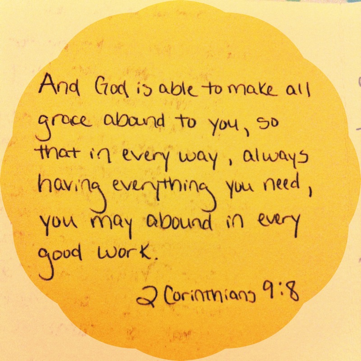 And God is able to make all
grace abound to you, so
that in every way, always
having everything you need,
you may abound in every
good work.
2 Corinthians 9:8